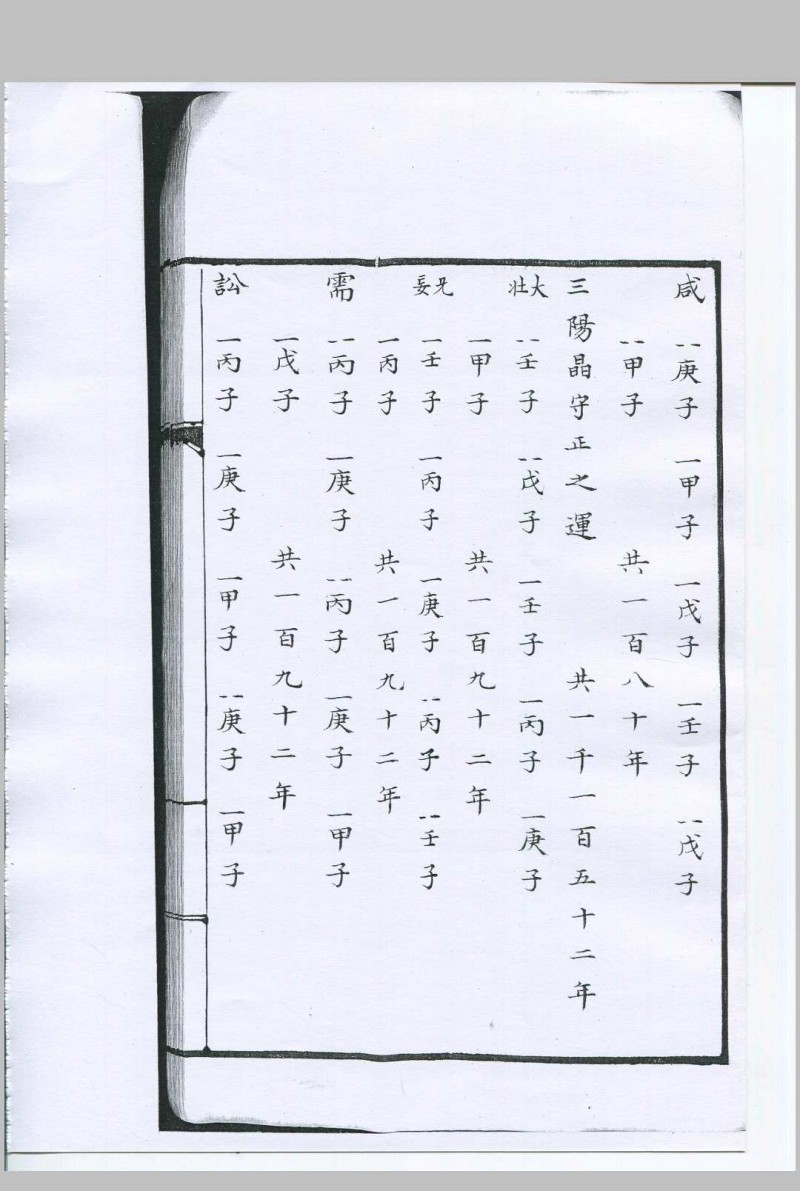 咸 --庚子 一甲子 一戊子 一壬子 --戊子
--甲子 共一百八十年
三陽晶守正之運 共一千一百五十二年
大壯 --壬子 --戊子 一壬子 一丙子 一庚子
一甲子 共一百九十二年
无妄 一壬子 一丙子 一庚子 --丙子 --壬子
一丙子 共一百九十二年
需 --丙子 一庚子 --丙子 一庚子 一甲子
一戊子 共一百九十二年
訟 一丙子 一庚子 一甲子 --庚子 一甲子